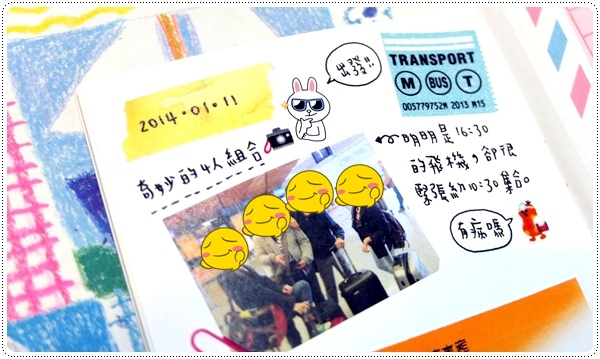 出發!!
TRANSPORT
M BUS T
005779752M 2013 M15
2014.01.11
奇妙的4人組合
明明是16:30
的飛機，卻很
緊張約10:30集合。
有病嗎